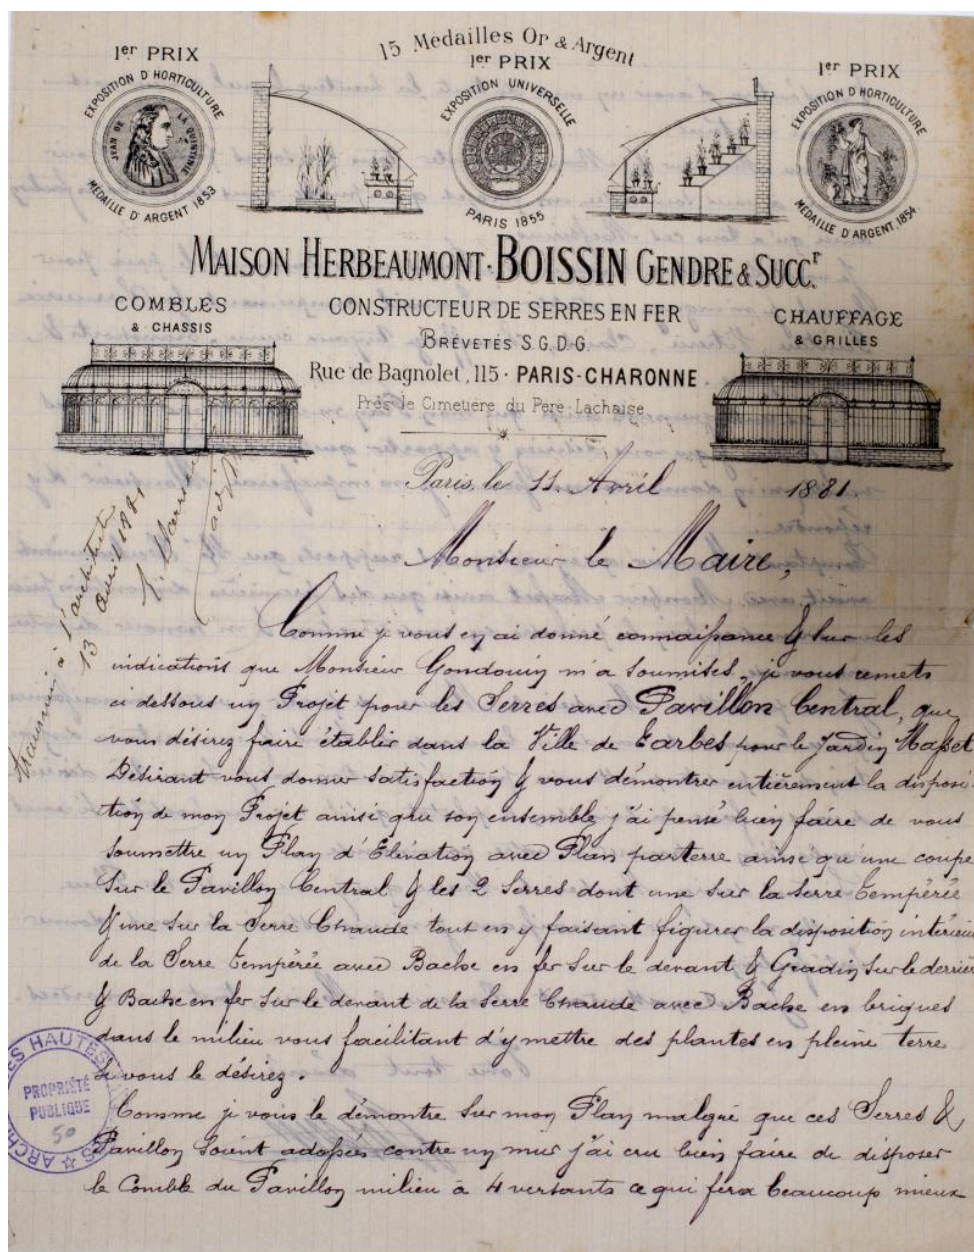 15 Médailles Or & Argent
1er PRIX
EXPOSITION D'HORTICULTURE
JEAN DE LA QUINTINIE
MÉDAILLE D'ARGENT 1853
1er PRIX
EXPOSITION UNIVERSELLE
PARIS 1855
1er PRIX
EXPOSITION D'HORTICULTURE
MÉDAILLE D'ARGENT 1854
MAISON HERBEAUMONT·BOISSIN GENDRE & SUCCr.
COMBLES
& CHASSIS
CONSTRUCTEUR DE SERRES EN FER
BREVETÉS S.G.D.G.
Rue de Bagnolet, 115 · PARIS-CHARONNE
Près le Cimetière du Père Lachaise
CHAUFFAGE
& GRILLES
Paris, le 11 Avril 1881.
à l'architecte
13 avril 1881
Monsieur le Maire,
Comme je vous en ai donné connaissance & sur les
indications que Monsieur Gondouin m'a soumises, je vous remets
ci dessous un Projet pour les Serres avec Pavillon Central, que
vous désirez faire établir dans la Ville de Tarbes pour le Jardin Massey
Désirant vous donner satisfaction & vous démontrer entièrement la disposi-
tion de mon Projet ainsi que son ensemble j'ai pensé bien faire de vous
soumettre un Plan d'Elévation avec Plan parterre ainsi qu'une coupe
sur le Pavillon Central & les 2 Serres dont une sur la Serre tempérée
& une sur la Serre Chaude tout en y faisant figurer la disposition intérieure
de la Serre tempérée avec Bache en fer sur le devant & Gradin sur le derrière
& Bache en fer sur le devant de la Serre Chaude avec Bache en briques
dans le milieu vous facilitant d'y mettre des plantes en pleine terre
si vous le désirez.
Comme je vous le démontre sur mon Plan malgré que ces Serres &
Pavillon soient adossés contre un mur j'ai cru bien faire de disposer
le Comble du Pavillon milieu à 4 versants ce qui fera beaucoup mieux
HAUTES
PROPRIÉTÉ
PUBLIQUE
50